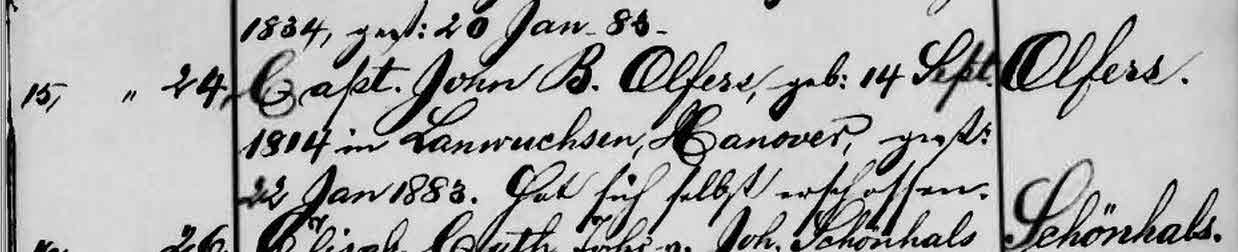 1834, gest: 20 Jan. 83.
15, " 24, Capt. John B. Olfers, geb: 14 Sept. Olfers.
1814 in Lanwuchsen, Hanover, gest:
22 Jan 1883. Hat sich selbst erschossen.
26. Elisab. Cath. Joh. Schönhals Schönhals.